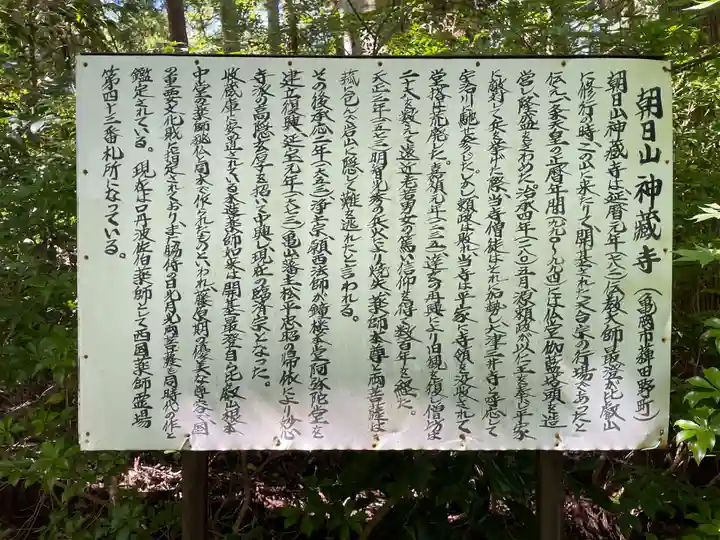 朝日山神蔵寺(亀岡市稗田野町)
朝日山神蔵寺は延暦元年(七八二)伝教大師最澄が比叡山
に修行の時、この山に来たりて開基された天台宗の行場であったと
伝え一条天皇の正暦年間(九九〇〜九九四)には仏堂伽藍塔頭を造
営し隆盛をきわめた。治承四年(一一八〇)五月、源頼政が以仁王を奉じ平家
に敵対して兵を挙ぐに際、当寺僧徒はこれに加勢し大津三井寺と呼応して
宇治川に馳せ参じたが頼政は敗れ当寺は平家に寺領を没収されて
堂塔は荒廃した。嘉禎元年(一二三五)達玄の再興により旧観を復し僧坊は
二十六を数えて遠近老若男女の篤い信仰を得て数百年を経た。
天正三年(一五七五)明智光秀の兵火により焼失、薬師本尊と両菩薩は
菰に包んで岩山に隠して難を逃れたと言われる。
その後承応二年(一六五三)浄土宗願西法師が鐘楼本堂阿弥陀堂を
建立復興、延宝元年(一六七三)亀山藩主松平忠昭の帰依により妙心
寺派の高隠玄厚を招いて中興し現在の臨済宗となった。
收蔵庫に安置されている木造薬師如来は開基最澄自ら比叡の根本
中堂の薬師秘仏と同木で作られたものといわれ、藤原期の優美な尊容で国
の重要文化財に指定されており、また脇侍の日光月光両菩薩も同時代の作と
鑑定されている。現在は丹波佐伯薬師として西国薬師霊場
第四十三番札所になっている。